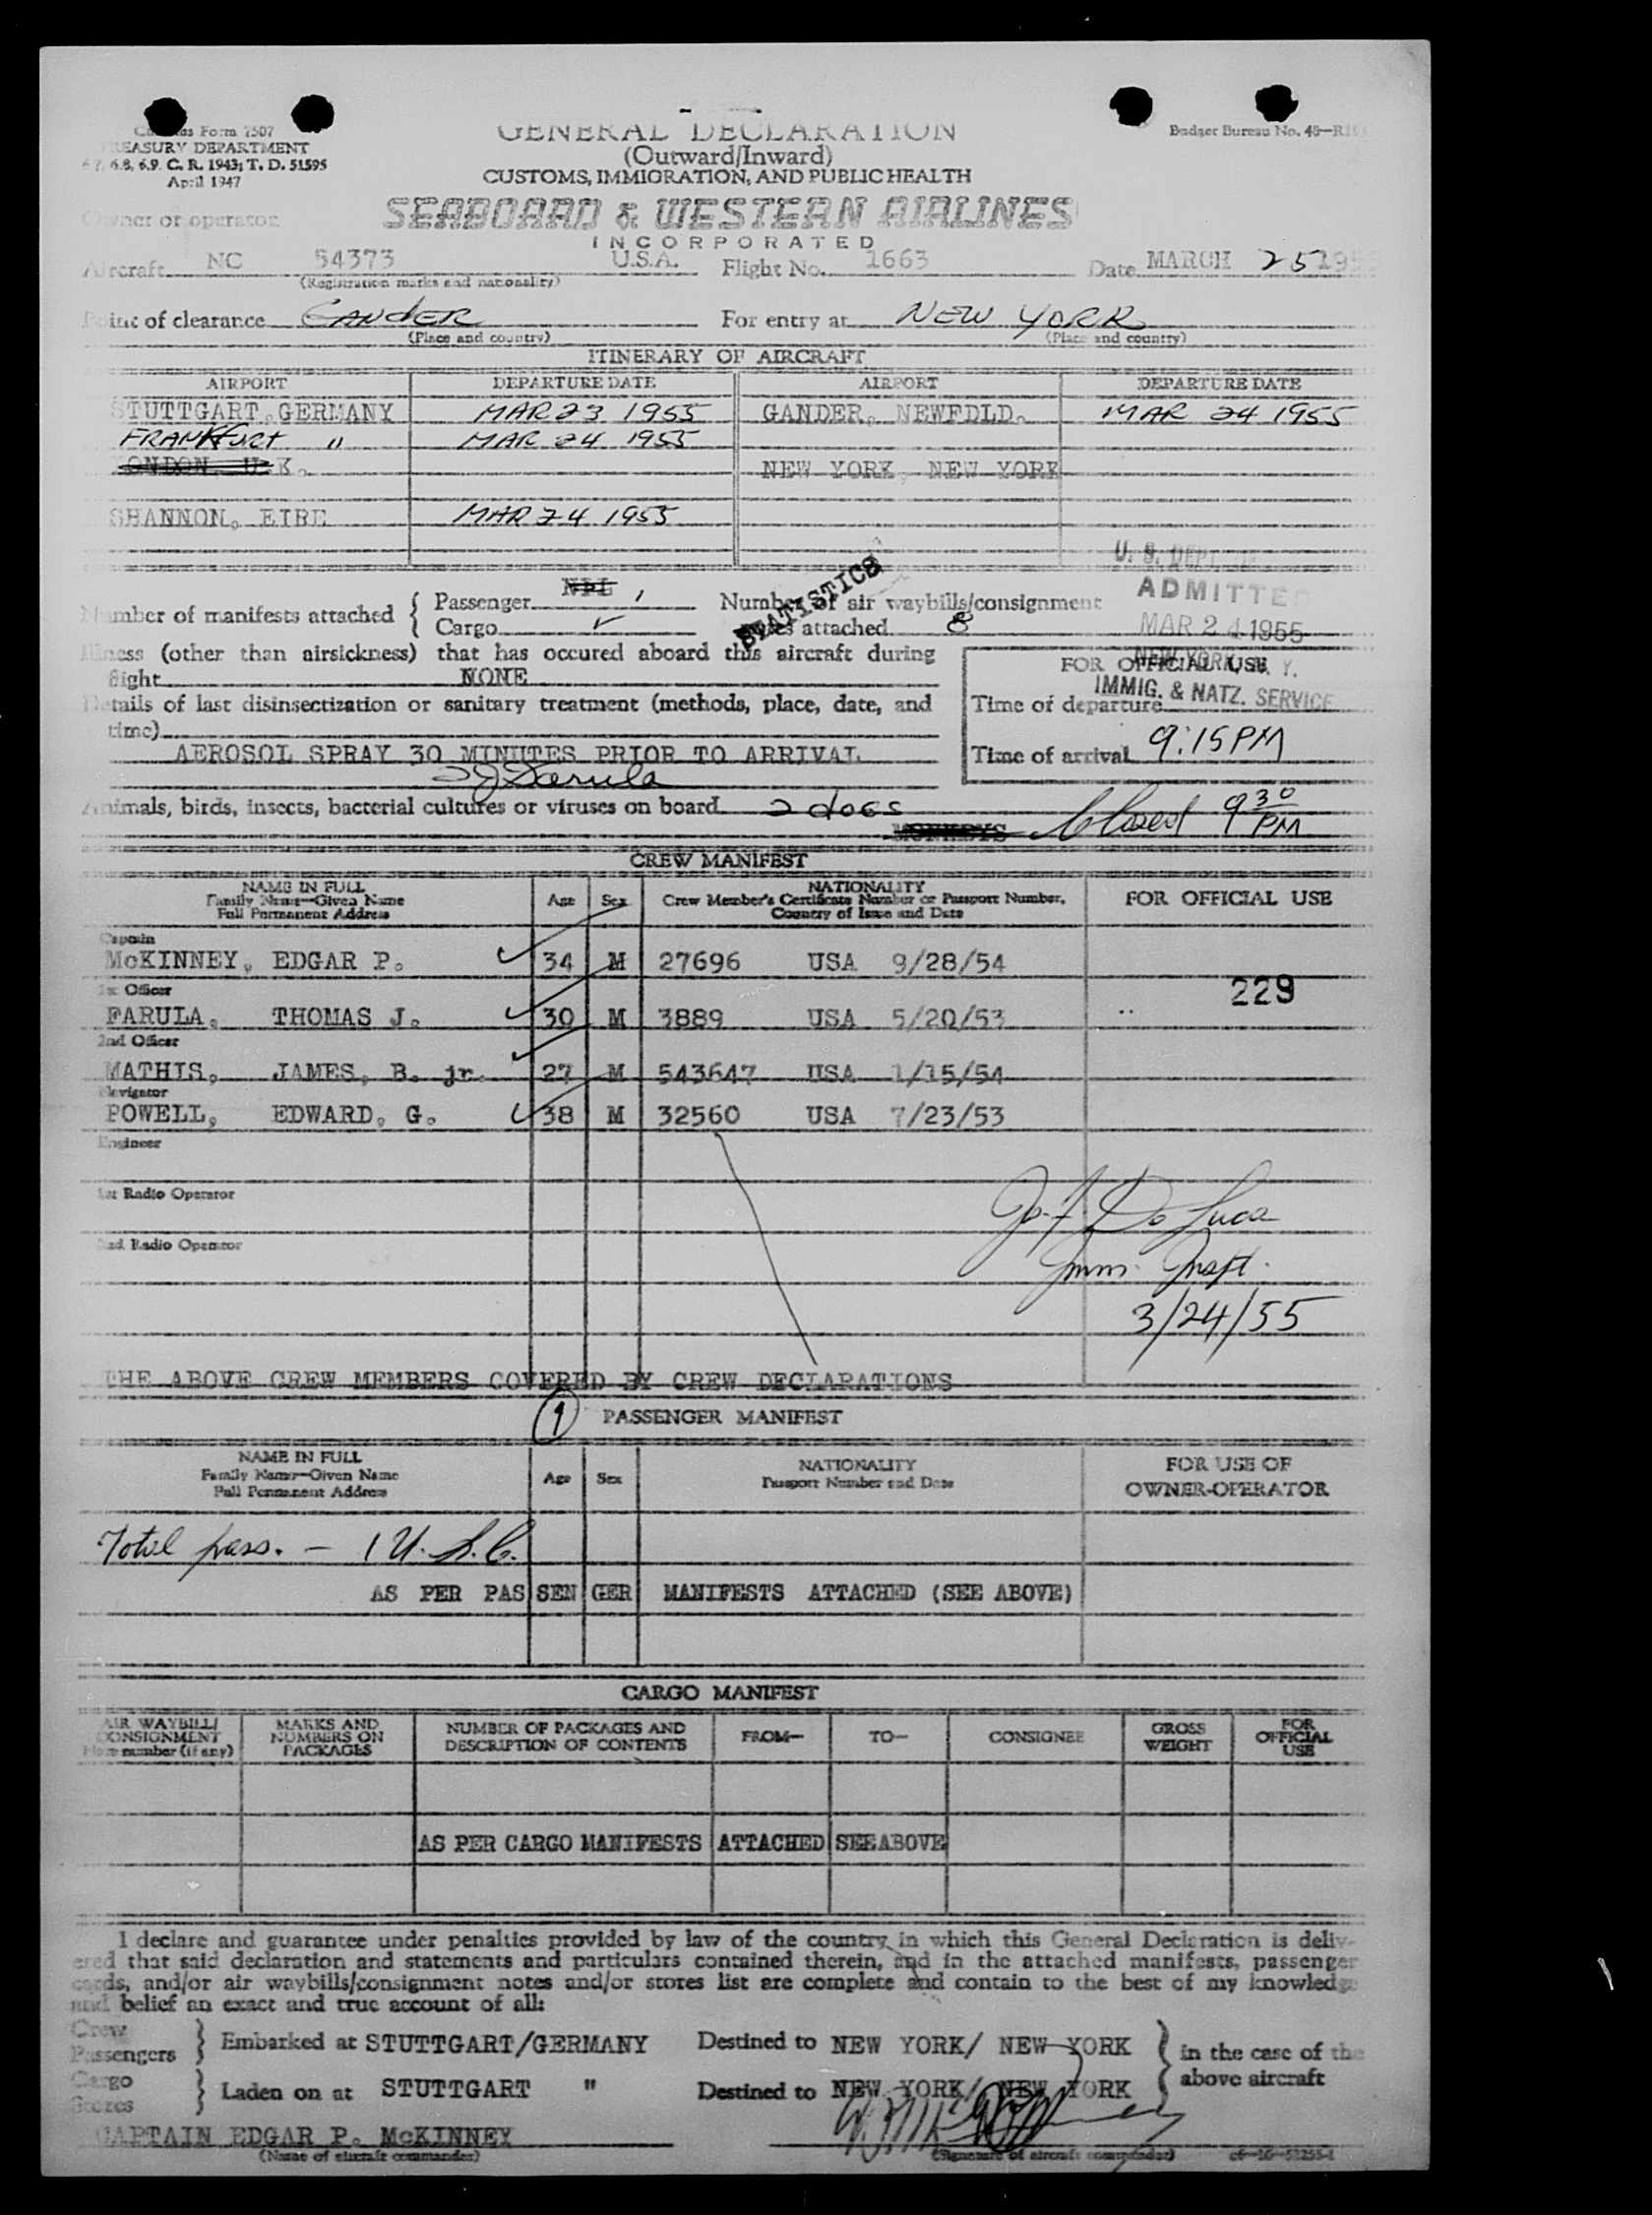 Customs Form 7507
TREASURY DEPARTMENT
6.7, 6.8, 6.9. C. R. 1943; T. D. 51595
April 1947
GENERAL DECLARATION
(Outward/Inward)
CUSTOMS, IMMIGRATION, AND PUBLIC HEALTH
Budget Bureau No. 48—R
Owner or operator
SEABOARD & WESTERN AIRLINES
INCORPORATED
Aircraft NC 54373 U.S.A. Flight No. 1663 Date MARCH 25 195
(Registration marks and nationality)
Point of clearance GANDER For entry at NEW YORK
(Place and country) (Place and country)
ITINERARY OF AIRCRAFT
AIRPORT DEPARTURE DATE AIRPORT DEPARTURE DATE
STUTTGART, GERMANY MAR 23 1955 GANDER, NEWFDLD. MAR 24 1955
FRANKFURT " MAR 24 1955
ONDON, U.K. NEW YORK, NEW YORK
SHANNON, EIRE MAR 24 1955
U. S. DEPT.
ADMITTED
MAR 24 1955
NEW YORK, N. Y.
IMMIG. & NATZ. SERVICE
Number of manifests attached { Passenger NIL 1
Cargo ✓
Number of air waybills/consignment
notes attached 8
STATISTICS
Illness (other than airsickness) that has occured aboard this aircraft during
flight NONE
FOR OFFICIAL USE
Details of last disinsectization or sanitary treatment (methods, place, date, and
time)
Time of departure
AEROSOL SPRAY 30 MINUTES PRIOR TO ARRIVAL
Time of arrival 9:15 PM
TJ Farula
Animals, birds, insects, bacterial cultures or viruses on board 2 dogs
MONKEYS Closed 9 30 PM
CREW MANIFEST
NAME IN FULL
Family Name—Given Name
Full Permanent Address
Age Sex
NATIONALITY
Crew Member's Certificate Number or Passport Number,
Country of Issue and Date
FOR OFFICIAL USE
Captain
McKINNEY, EDGAR P. 34 M 27696 USA 9/28/54
1st Officer
229
FARULA, THOMAS J. 30 M 3889 USA 5/20/53
2nd Officer
MATHIS, JAMES, B. jr. 27 M 543647 USA 1/15/54
Navigator
POWELL, EDWARD, G. 38 M 32560 USA 7/23/53
Engineer
1st Radio Operator
2nd Radio Operator
Jos. F. De Luca
Imm. Inspt.
3/24/55
THE ABOVE CREW MEMBERS COVERED BY CREW DECLARATIONS
1 PASSENGER MANIFEST
NAME IN FULL
Family Name—Given Name
Full Permanent Address
Age Sex
NATIONALITY
Passport Number and Date
FOR USE OF
OWNER-OPERATOR
Total pass. — 1 U.S.C.
AS PER PASSENGER MANIFESTS ATTACHED (SEE ABOVE)
CARGO MANIFEST
AIR WAYBILL/
CONSIGNMENT
Note number (if any)
MARKS AND
NUMBERS ON
PACKAGES
NUMBER OF PACKAGES AND
DESCRIPTION OF CONTENTS
FROM— TO— CONSIGNEE
GROSS
WEIGHT
FOR
OFFICIAL
USE
AS PER CARGO MANIFESTS ATTACHED SEE ABOVE
I declare and guarantee under penalties provided by law of the country in which this General Declaration is deliv-
ered that said declaration and statements and particulars contained therein, and in the attached manifests, passenger
cards, and/or air waybills/consignment notes and/or stores list are complete and contain to the best of my knowledge
and belief an exact and true account of all:
Crew
Passengers } Embarked at STUTTGART/GERMANY Destined to NEW YORK/ NEW YORK } in the case of the
Cargo
Stores } Laden on at STUTTGART " Destined to NEW YORK/ NEW YORK above aircraft
CAPTAIN EDGAR P. McKINNEY
(Name of aircraft commander) (Signature of aircraft commander)